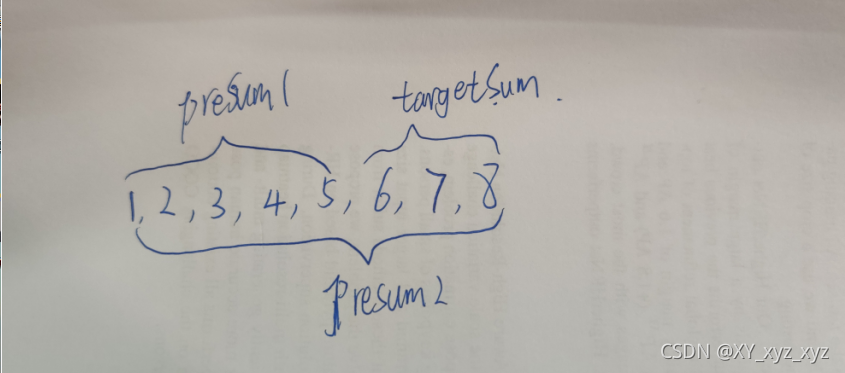 preSum1 targetSum.
1, 2, 3, 4, 5, 6, 7, 8
presum2
CSDN @XY_xyz_xyz